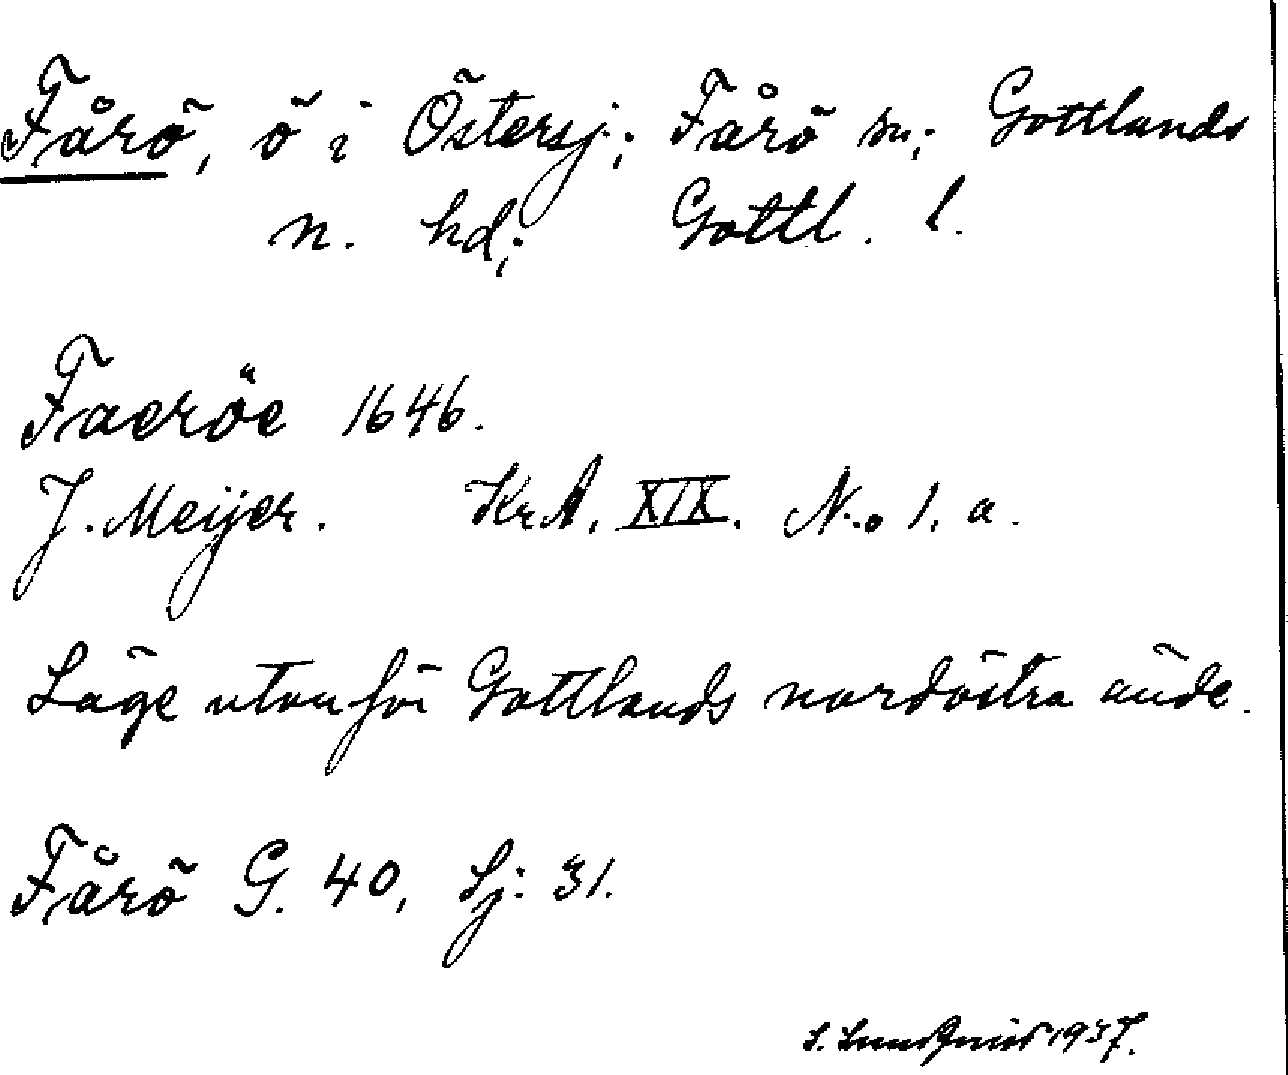 Fårö, ö i Östersj.; Fårö sn; Gottlands
n. hd; Gottl. l.
Faeröe 1646.
J. Meijer. KrA. XIX. N:o 1. a.
Läge utanför Gottlands nordöstra ände.
Fårö G. 40, Sj: 31.
S. Lundqvist 1937.